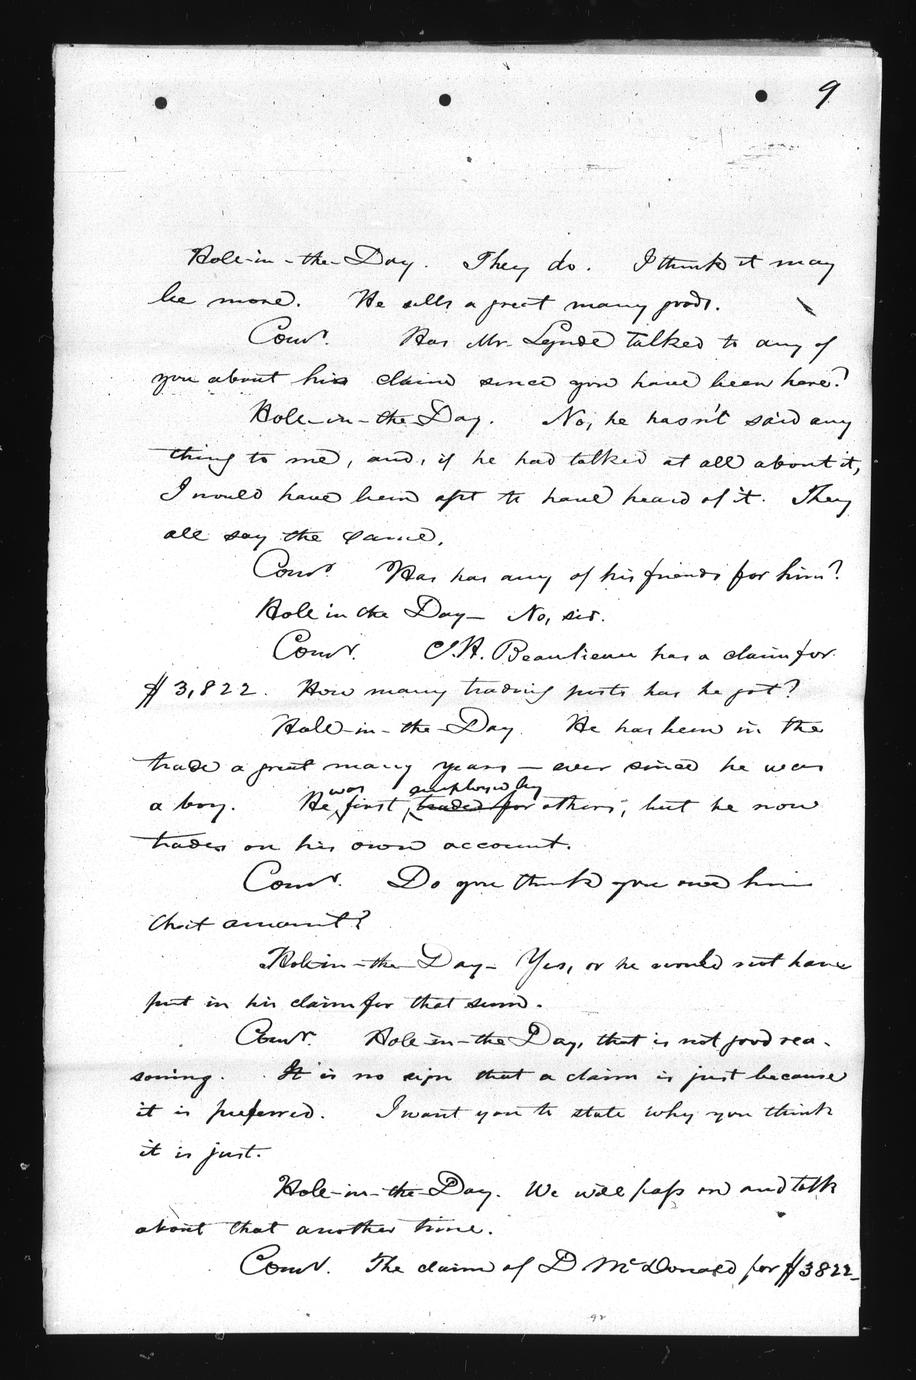 9
Hole-in-the-Day. They do. I think it may
be more. He sells a great many goods.
Comr. Has Mr. Lynde talked to any of
you about his claim since you have been here?
Hole-in-the-Day. No, he hasn't said any
thing to me, and, if he had talked at all about it,
I would have been apt to have heard of it. They
all say the same.
Comr. Has has any of his friends for him?
Hole in the Day— No, sir.
Comr. C.H. Beaulieau has a claim for
$3,822. How many trading posts has he got?
Hole-in-the-Day. He has been in the
trade a great many years — ever since he was
a boy. He was first employed by traded for others, but he now
trades on his own account.
Comr. Do you think you owe him
that amount?
Hole-in-the-Day— Yes, or he would not have
put in his claim for that sum.
Comr. Hole-in-the-Day, that is not good rea-
soning. It is no sign that a claim is just because
it is preferred. I want you to state why you think
it is just.
Hole-in-the-Day. We will pass on and talk
about that another time.
Comr. The claim of D McDonald for $3822—
92